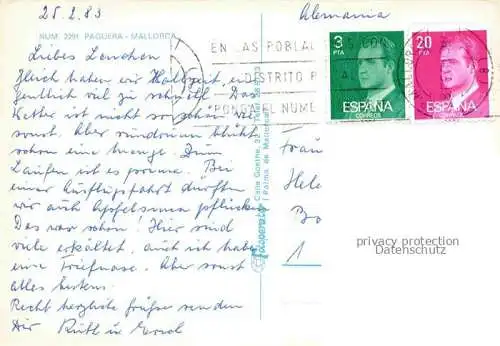 25.2.83
Alemania
NUM. 2291 PAGUERA - MALLORCA
EN LAS POBLA
DISTRITO P
PONGA EL NUME
3
PTA
ESPAÑA
CORREOS
20
PTA
ESPAÑA
Liebes Lenchen
Gleich haben wir Halbzeit, ei
gentlich viel zu schnell. Das
Wetter ist nicht so schön wie
sonst. Aber rundrum blüht
schon eine Menge. Zum
Laufen ist es prima. Bei
einer Ausflugsfahrt durften
wir auch Apfelsinen pflücken
Das war schön! Hier sind
viele erkältet, auch ich habe
eine Triefnase. Aber sonst
alles bestens.
Recht herzliche Grüße senden
Dir Ruth u.
Frau
Hele
Bo
1
Calle Goethe, 22
Palma de Mallorca
privacy protection
Datenschutz